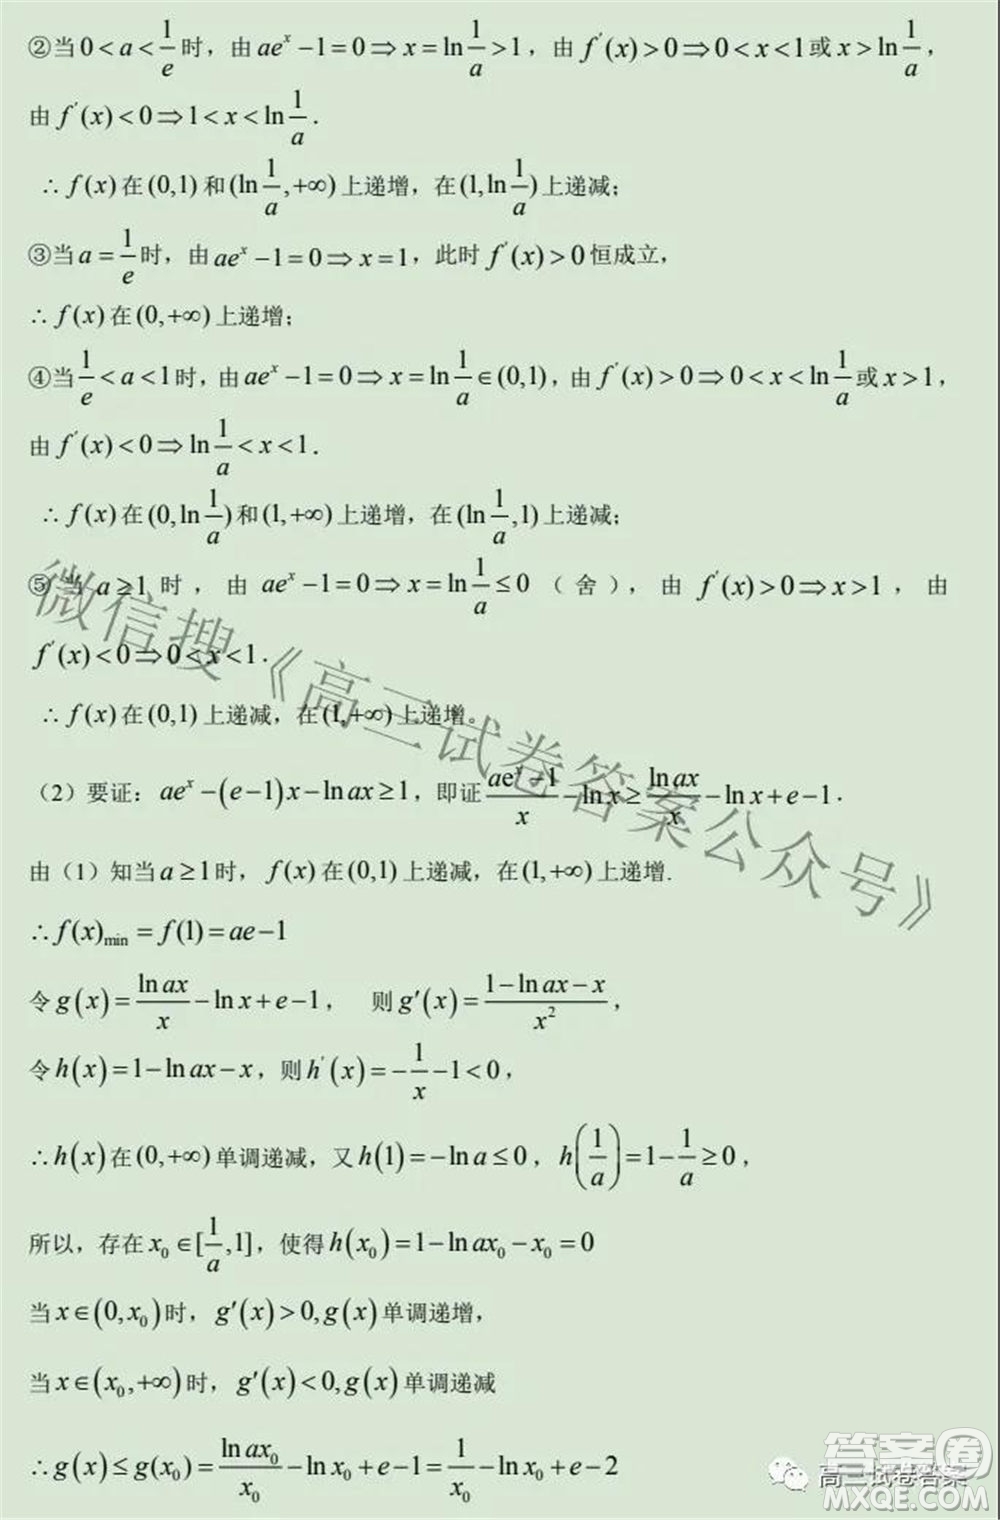 ②当 0 < a < 1/e 时，由 ae^x − 1 = 0 ⇒ x = ln 1/a > 1，由 f′(x) > 0 ⇒ 0 < x < 1 或 x > ln 1/a，
由 f′(x) < 0 ⇒ 1 < x < ln 1/a.
∴ f(x) 在 (0,1) 和 (ln 1/a, +∞) 上递增，在 (1, ln 1/a) 上递减；
③当 a = 1/e 时，由 ae^x − 1 = 0 ⇒ x = 1，此时 f′(x) > 0 恒成立，
∴ f(x) 在 (0, +∞) 上递增；
④当 1/e < a < 1 时，由 ae^x − 1 = 0 ⇒ x = ln 1/a ∈ (0,1)，由 f′(x) > 0 ⇒ 0 < x < ln 1/a 或 x > 1，
由 f′(x) < 0 ⇒ ln 1/a < x < 1.
∴ f(x) 在 (0, ln 1/a) 和 (1, +∞) 上递增，在 (ln 1/a, 1) 上递减；
⑤当 a ≥ 1 时，由 ae^x − 1 = 0 ⇒ x = ln 1/a ≤ 0（舍），由 f′(x) > 0 ⇒ x > 1，由
f′(x) < 0 ⇒ 0 < x < 1.
∴ f(x) 在 (0,1) 上递减，在 (1, +∞) 上递增。
（2）要证：ae^x − (e−1)x − ln ax ≥ 1，即证 (ae^x − 1)/x − ln x ≥ (ln ax)/x − ln x + e − 1.
由（1）知当 a ≥ 1 时，f(x) 在 (0,1) 上递减，在 (1, +∞) 上递增.
∴ f(x)min = f(1) = ae − 1
令 g(x) = (ln ax)/x − ln x + e − 1， 则 g′(x) = (1 − ln ax − x)/x²，
令 h(x) = 1 − ln ax − x，则 h′(x) = −1/x − 1 < 0，
∴ h(x) 在 (0, +∞) 单调递减，又 h(1) = −ln a ≤ 0，h(1/a) = 1 − 1/a ≥ 0，
所以，存在 x₀ ∈ [1/a, 1]，使得 h(x₀) = 1 − ln ax₀ − x₀ = 0
当 x ∈ (0, x₀) 时，g′(x) > 0, g(x) 单调递增，
当 x ∈ (x₀, +∞) 时，g′(x) < 0, g(x) 单调递减
∴ g(x) ≤ g(x₀) = (ln ax₀)/x₀ − ln x₀ + e − 1 = 1/x₀ − ln x₀ + e − 2
微信搜《高三试卷答案公众号》
高三试卷答案
答案圈
MXQE.COM